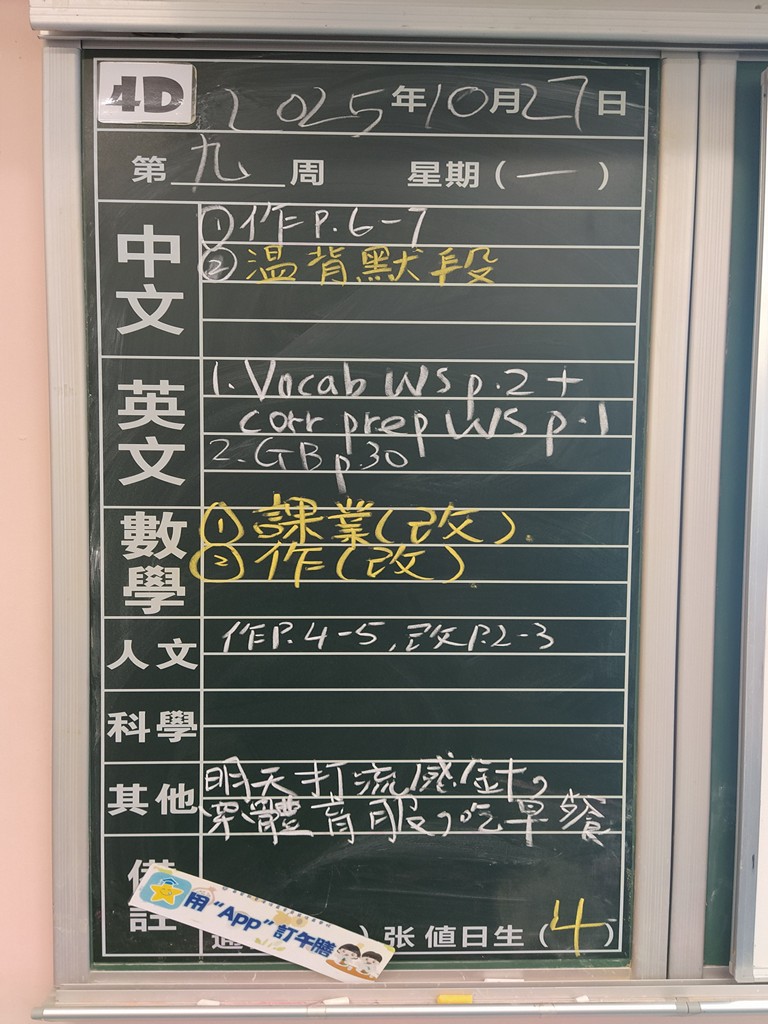 4D 2025年10月27日
第九周 星期(一)
中文
①作P.6-7
②温背默段
英文
1. Vocab WS p.2 +
corr prep WS p.1
2. GB p.30
數學
①課業(改)
②作(改)
人文
作P.4-5,改P.2-3
科學
其他
明天打流感針,
穿體育服,吃早餐
備註
用“App”訂午膳
通 )张 值日生(4)